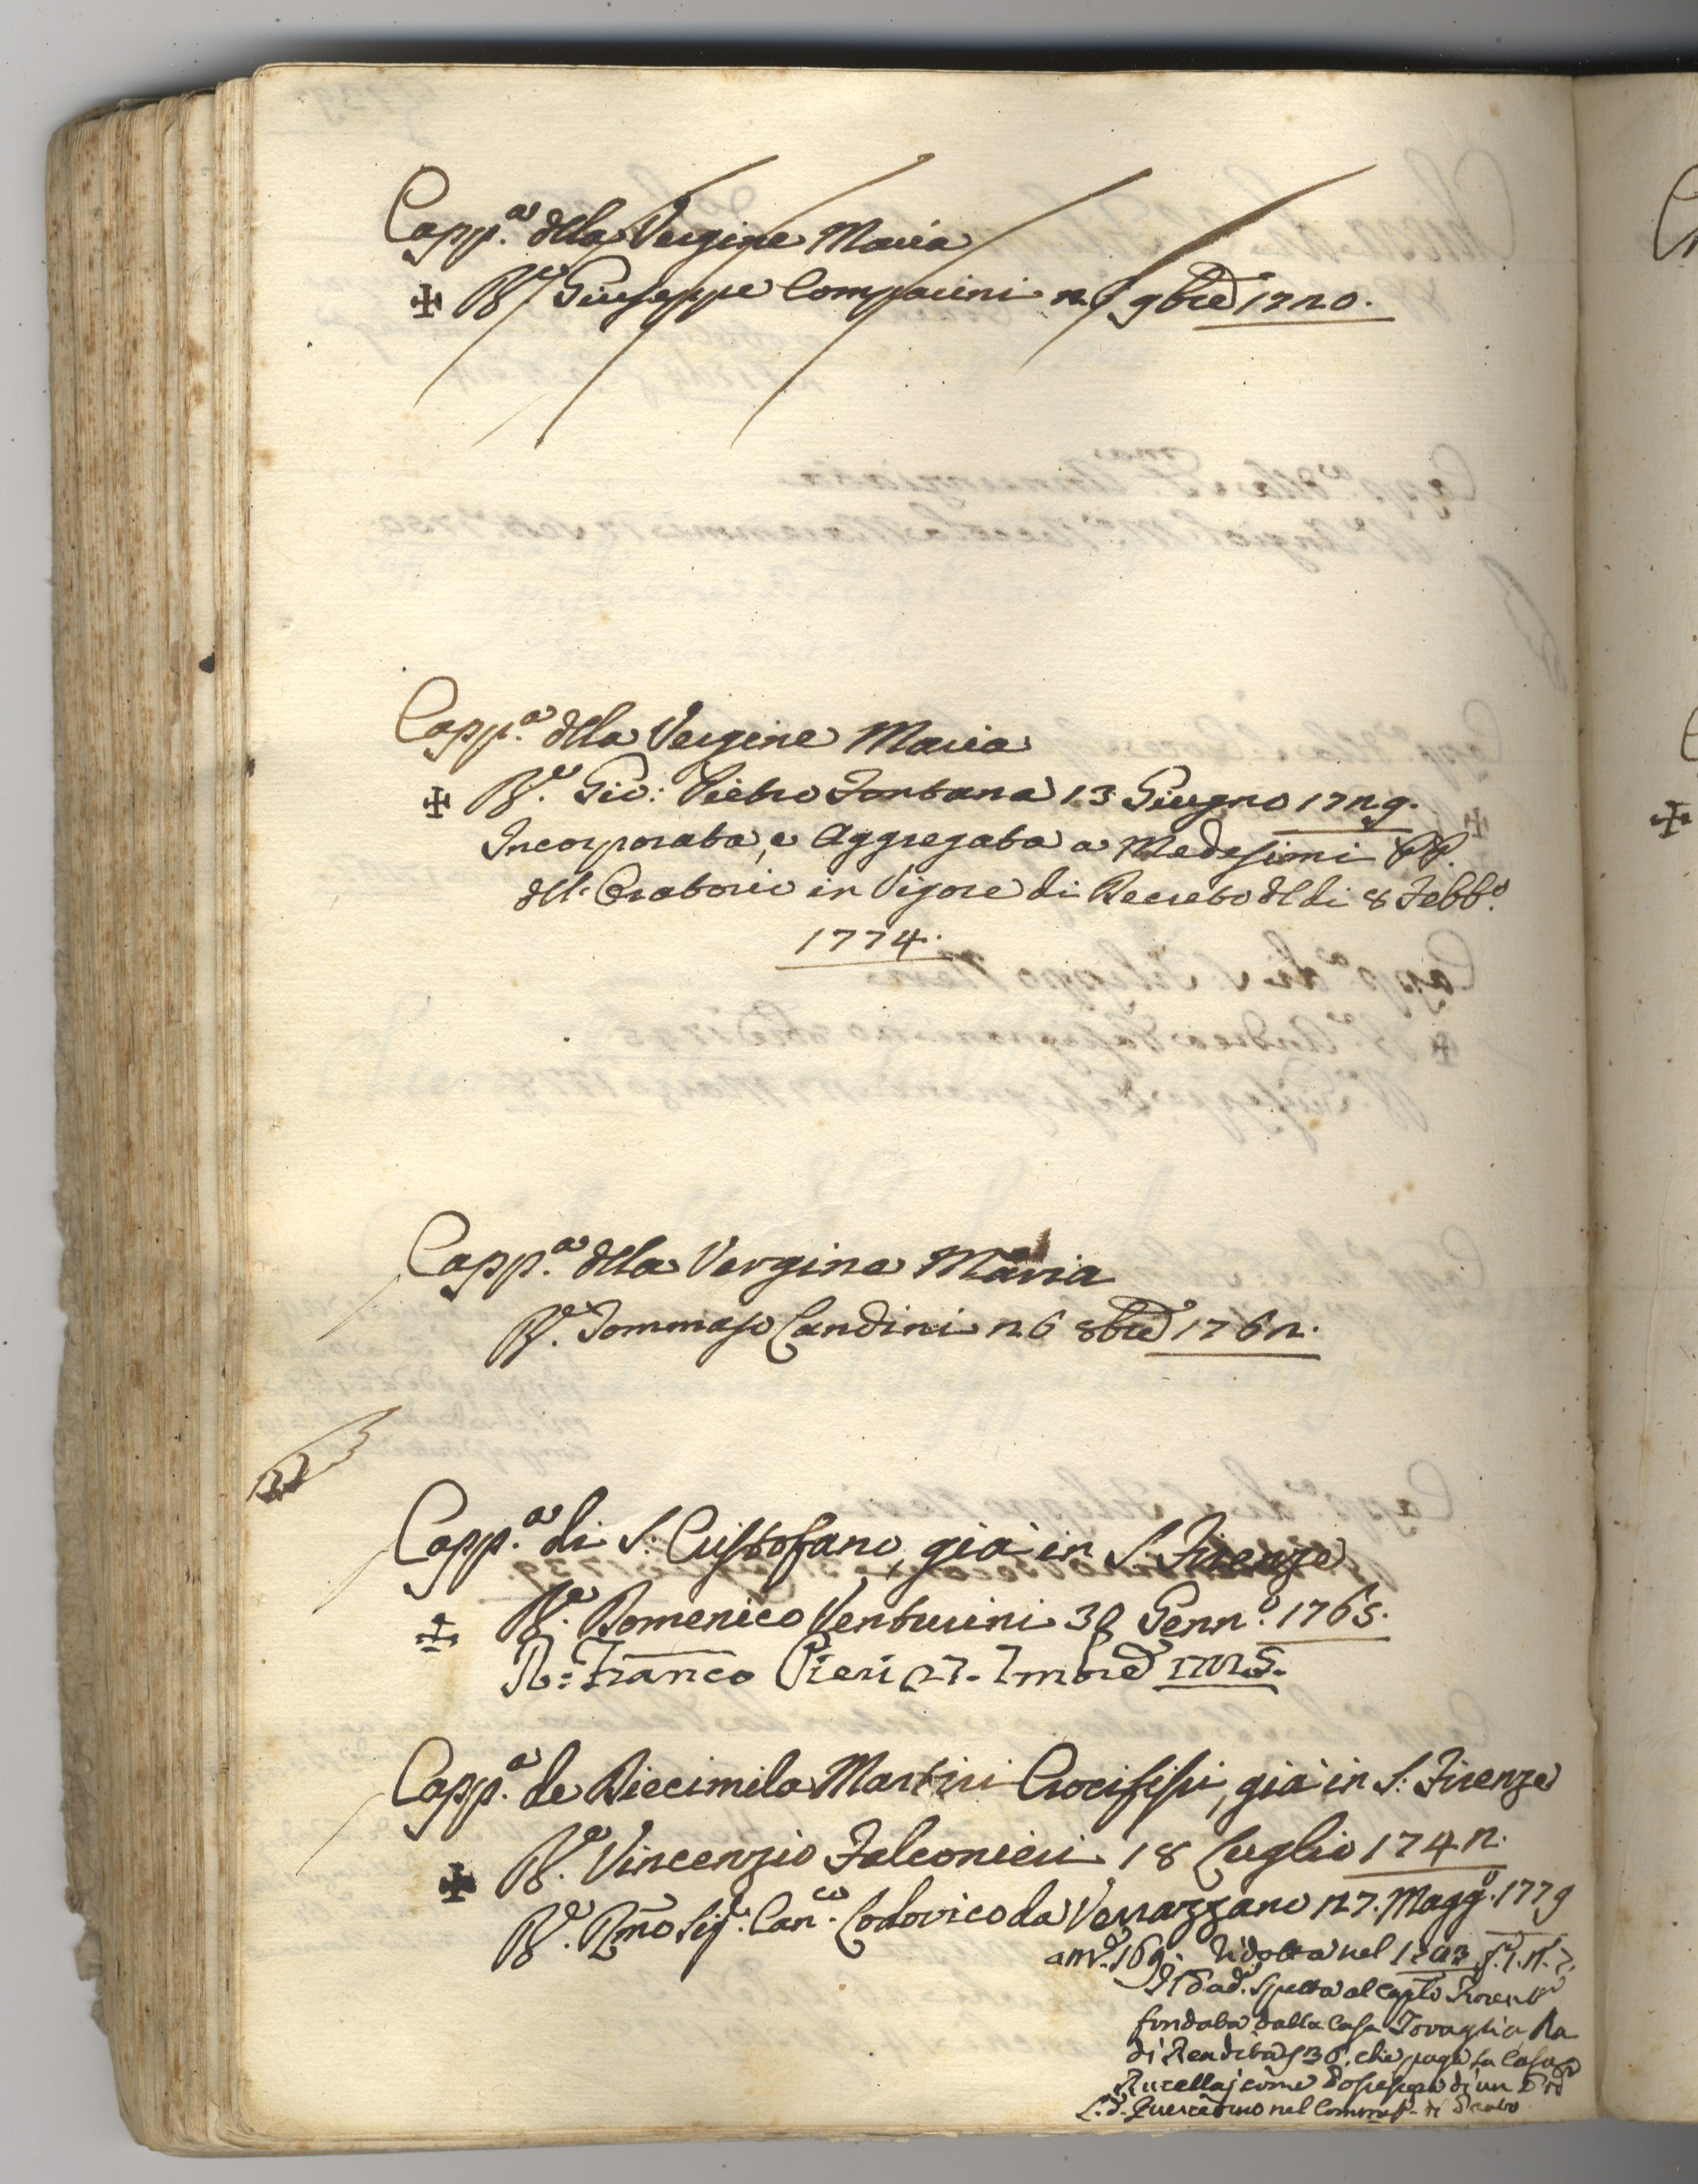 Capp.ª della Vergine Maria
✠ R.e Giuseppe Compagini 9bre 1720.
Capp.ª della Vergine Maria
✠ R.e Gio: Pietro Fontana 13 Giugno 1729.
Incorporata, e Aggregata a Medesimi PP.
dell' Oratorio in Vigore di Decreto del di 8 Febb.o
1774.
Capp.ª della Vergine Maria
R.e Tommaso Landini 26 8bre 1762.
Capp.ª di S. Cristofano, già in S. Firenze
✠ R.e Domenico Venturini 30 Genn.o 1765.
R: Franco Pieri 27. 7mbre
Capp.ª de Diecimila Martiri Crocifissi, già in S: Firenze
✠ R.e Vincenzio Falconieri 18 Luglio 1742.
R.e Rmo Sig.r Can.co Lodovico da Verrazzano 27. Magg.o 1779
Ridotta nel
Spetta al Capto Fiorent.o
fondata dalla Casa Tovaglia
di Rendita che paga la Casa
Rucellaj come di un
Querceto nel di Prato